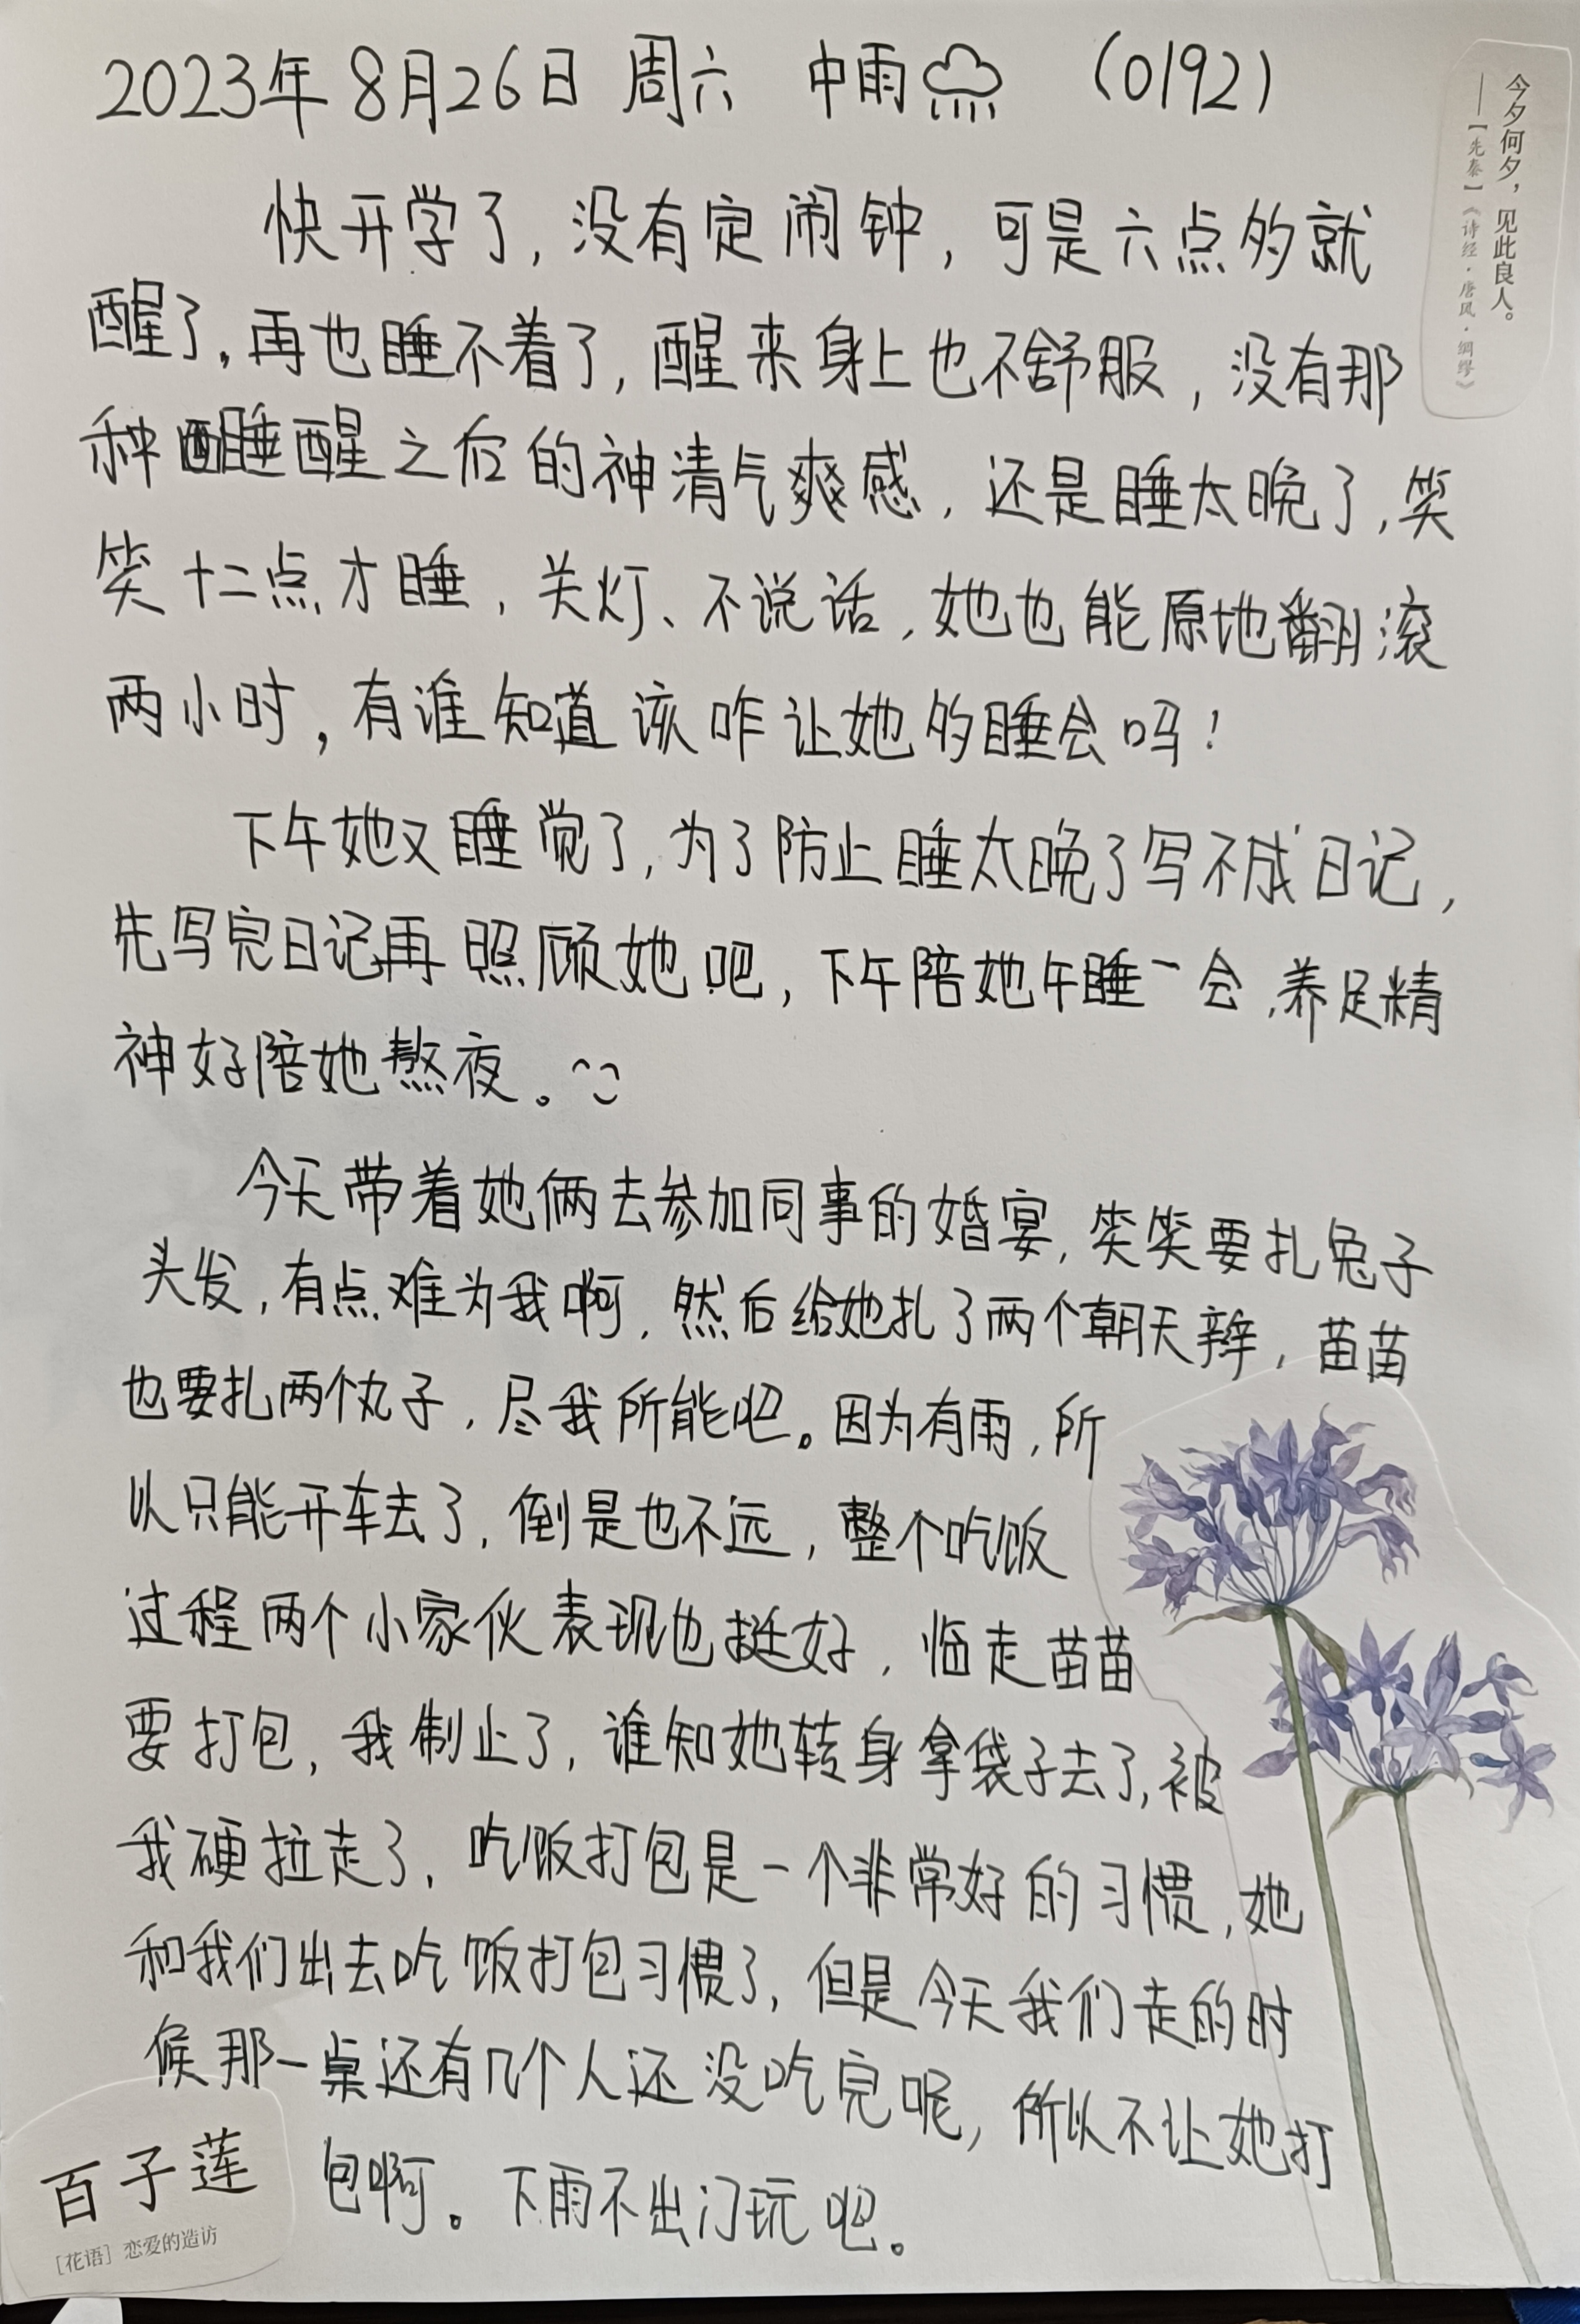 2023年8月26日 周六 中雨 (0192)
今夕何夕，见此良人。
——【先秦】《诗经·唐风·绸缪》
快开学了，没有定闹钟，可是六点多就
醒了，再也睡不着了，醒来身上也不舒服，没有那
种睡醒之后的神清气爽感，还是睡太晚了，笑
笑十二点才睡，关灯、不说话，她也能原地翻滚
两小时，有谁知道该咋让她多睡会吗！
下午她又睡觉了，为了防止睡太晚了写不成日记，
先写完日记再照顾她吧，下午陪她午睡一会，养足精
神好陪她熬夜。
今天带着她俩去参加同事的婚宴，笑笑要扎兔子
头发，有点难为我啊，然后给她扎了两个朝天辫，苗苗
也要扎两个丸子，尽我所能吧。因为有雨，所
以只能开车去了，倒是也不远，整个吃饭
过程两个小家伙表现也挺好，临走苗苗
要打包，我制止了，谁知她转身拿袋子去了，被
我硬拉走了，吃饭打包是一个非常好的习惯，她
和我们出去吃饭打包习惯了，但是今天我们走的时
候那一桌还有几个人还没吃完呢，所以不让她打
包啊。下雨不出门玩吧。
百子莲
[花语] 恋爱的造访